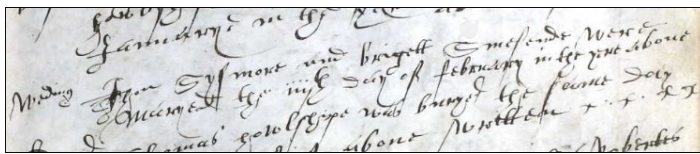 Januarye in the yere
Weding Jhon Sysmore and brigett Smesende were
Maryed the iiijth day of february in the yere above
Thomas howlshype was buryed the same day
above wrytten
Roberts